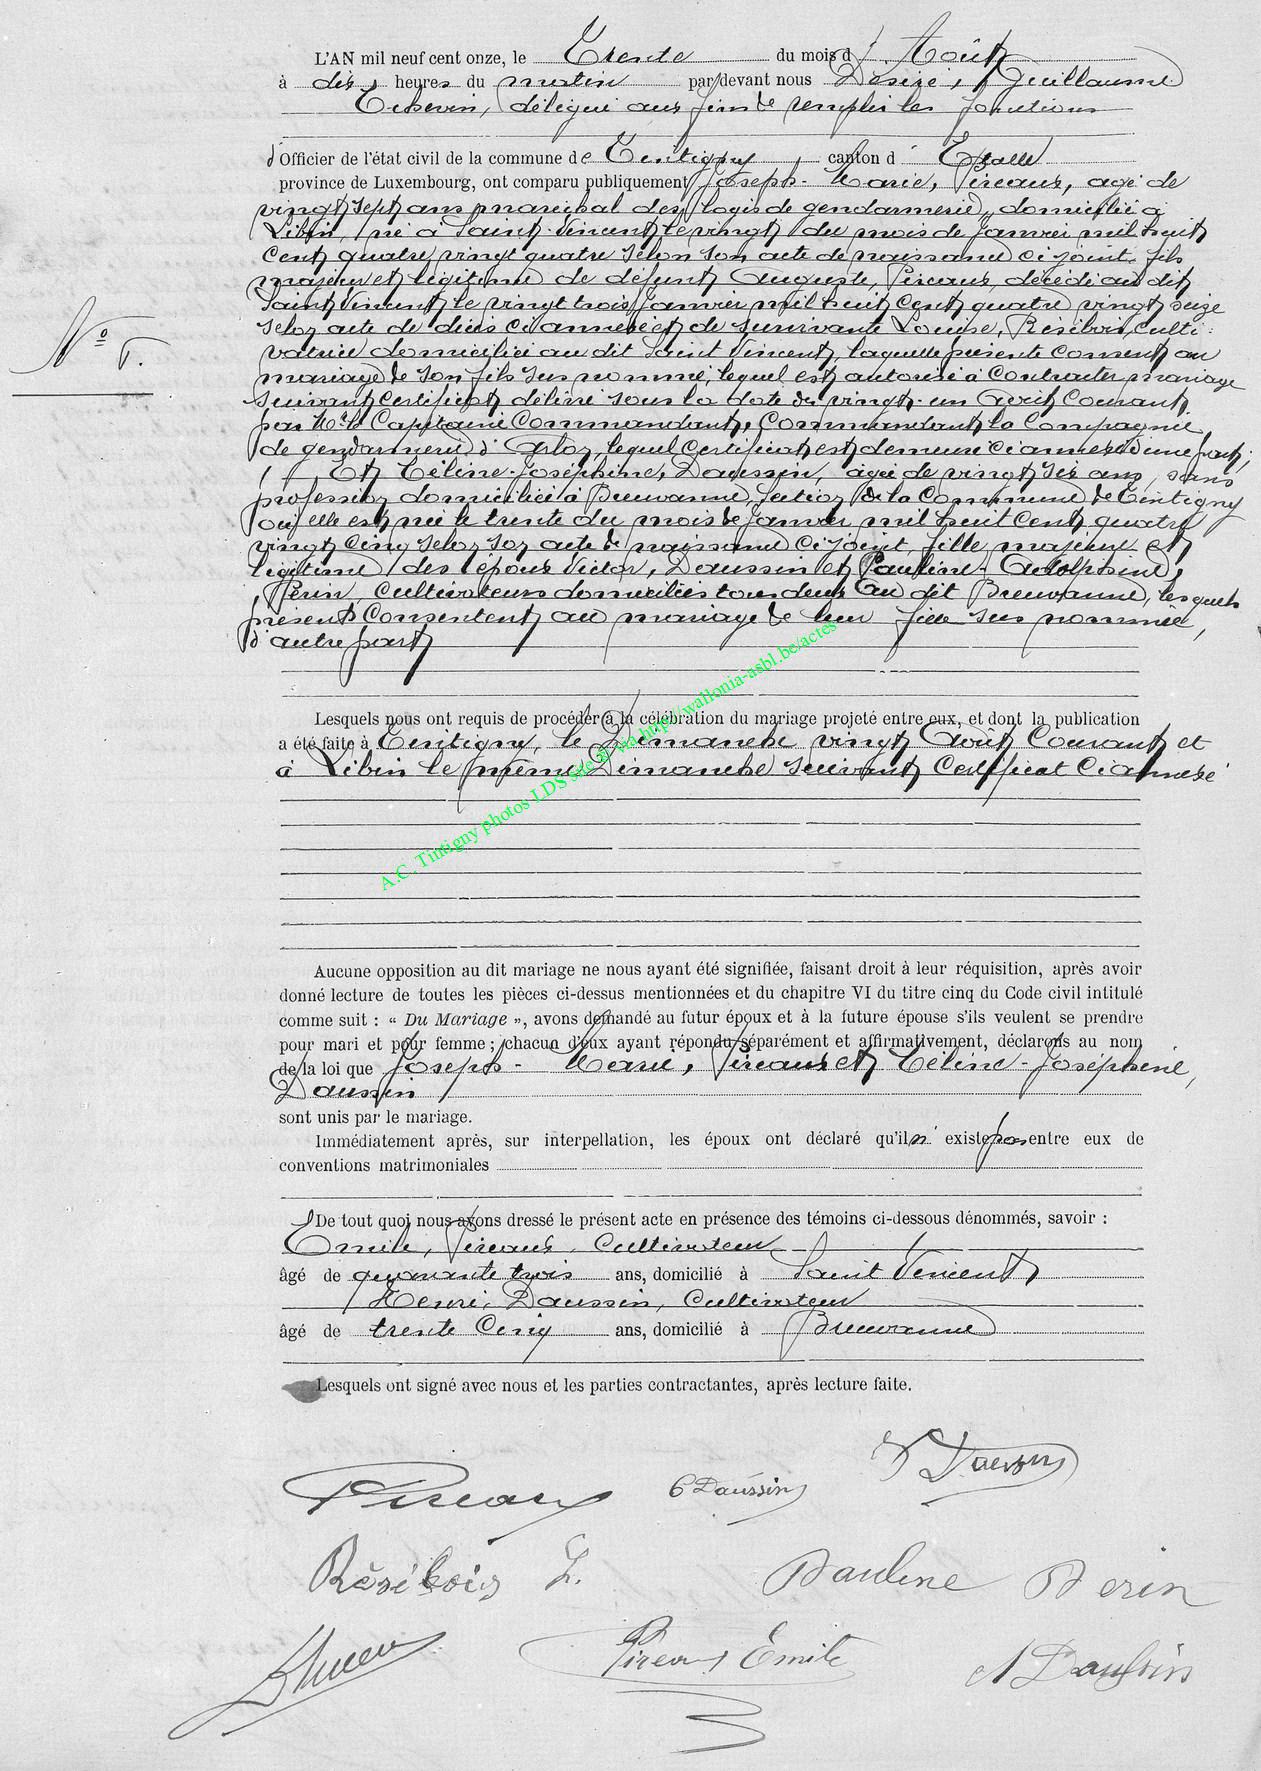 L'AN mil neuf cent onze, le Trente du mois d' Août
à dix heures du matin par devant nous Désiré, Guillaume
délégué aux fins de remplir les fonctions
d'Officier de l'état civil de la commune de Tintigny canton d' Etalle
province de Luxembourg, ont comparu publiquement Joseph-Marie, Pireaux, agé de
vingt sept ans marechal des logis de gendarmerie, domicilié à
Libin, né à Saint-Vincent le vingt du mois de Janvier mil huit
cent quatre vingt quatre selon son acte de naissance ci joint, fils
majeur et légitime de défunt Auguste, Pireaux, décédé au dit
Saint Vincent le vingt trois Janvier mil huit cent quatre vingt seize
selon acte de décès ci annexé et de survivante Louise, Résibois, culti-
vatrice domiciliée au dit Saint Vincent, laquelle présente consent au
mariage de son fils sus nommé, lequel est autorisé à contracter mariage
suivant certificat délivré sous la date du vingt-un Août Courant
par Mr le Capitaine Commandant, Commandant la Compagnie
de gendarmerie d'Arlon, lequel certificat est demeuré ci annexé d'une part,
Et Céline-Joséphine, Daussin, agée de vingt six ans, sans
profession domiciliée à Breuvanne, section de la Commune de Tintigny
où elle est née le trente du mois de Janvier mil huit cent quatre
vingt cinq selon son acte de naissance ci joint, fille majeure et
légitime des époux Victor, Daussin et Pauline-Adolphine,
Perin, cultivateurs domiciliés tous deux au dit Breuvanne, lesquels
présents consentent au mariage de leur fille sus nommée,
d'autre part
Lesquels nous ont requis de procéder à la célébration du mariage projeté entre eux, et dont la publication
a été faite à Tintigny, le Dimanche vingt Août Courant et
à Libin le même Dimanche suivant Certificat Ci annexé
Aucune opposition au dit mariage ne nous ayant été signifiée, faisant droit à leur réquisition, après avoir
donné lecture de toutes les pièces ci-dessus mentionnées et du chapitre VI du titre cinq du Code civil intitulé
comme suit : « Du Mariage », avons demandé au futur époux et à la future épouse s'ils veulent se prendre
pour mari et pour femme ; chacun d'eux ayant répondu séparément et affirmativement, déclarons au nom
de la loi que Joseph-Marie, Pireaux et Céline-Joséphine,
Daussin
sont unis par le mariage.
Immédiatement après, sur interpellation, les époux ont déclaré qu'il n' existe pas entre eux de
conventions matrimoniales
De tout quoi nous avons dressé le présent acte en présence des témoins ci-dessous dénommés, savoir :
Emile, Pireaux, Cultivateur
âgé de quarante trois ans, domicilié à Saint Vincent
Henri, Daussin, Cultivateur
âgé de trente Cinq ans, domicilié à Breuvanne
Lesquels ont signé avec nous et les parties contractantes, après lecture faite.
Pireaux C Daussin V Daussin
Résibois L. Pauline Perin
Pireaux Emile H Daussin
No 5.
A.C. Tintigny photos LDS Site & via http://wallonia-asbl.be/actes